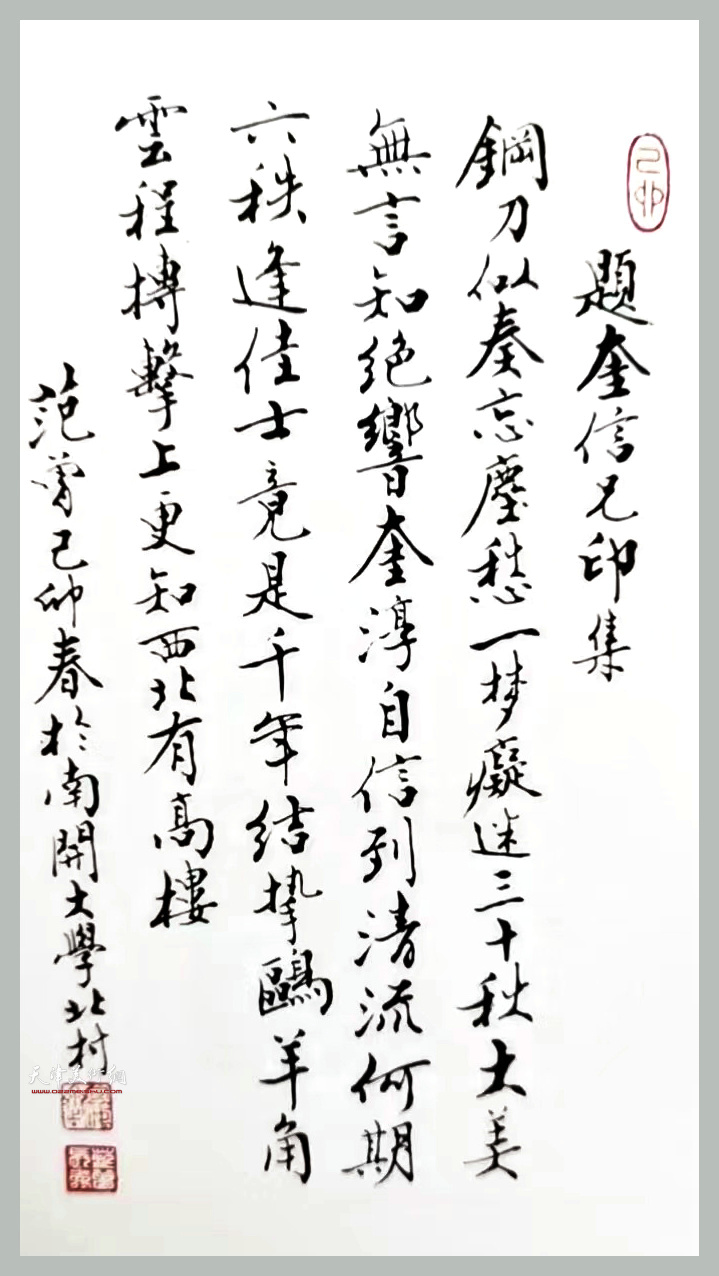 己卯
題奎信兄印集
鋼刀似奏忘塵愁一梦癡迷三十秋大美
無言知绝響奎淳自信到清流何期
六秩逢佳士竟是千年结挚鷗羊角
雲程搏擊上更知西北有高樓
范曾己卯春於南開大學北村
天津美术网